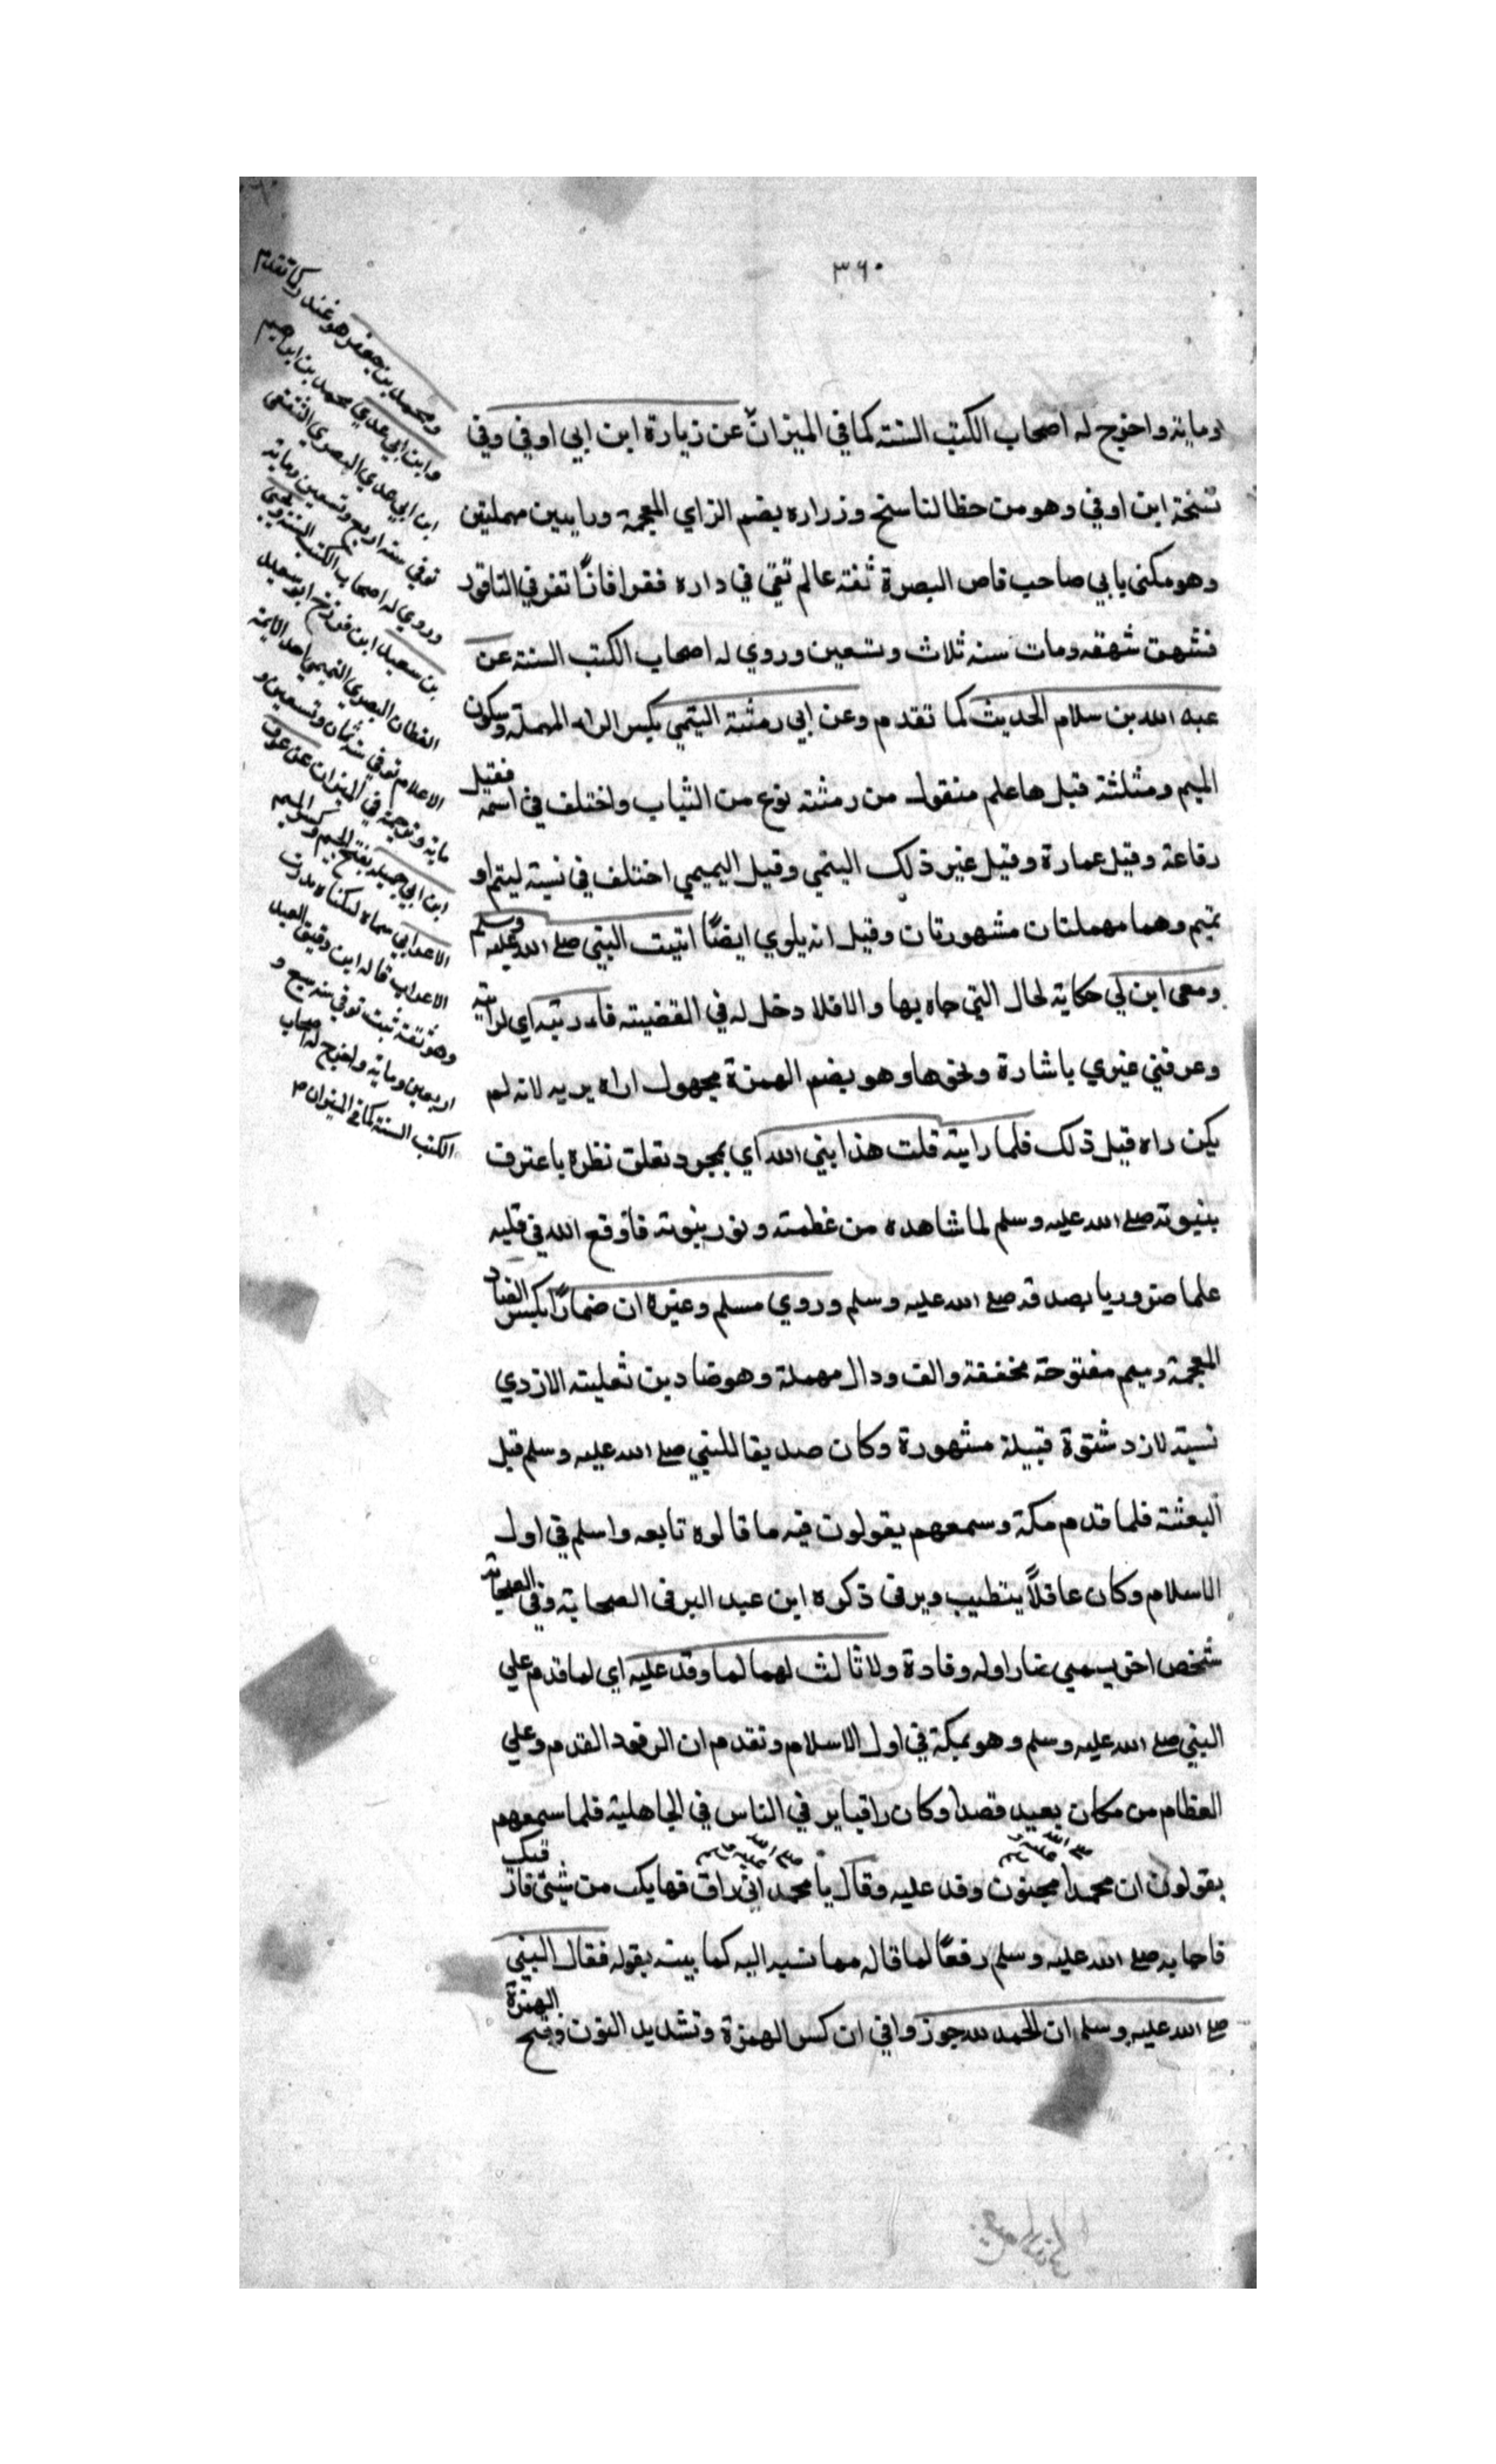 ٣٦٠
ومائة واخرج له اصحاب الكتب الستة كما في الميزان عن زرارة ابن ابي اوفي وفي
نسخة ابن اوفي وهو من خطا لناسخ وزراره بضم الزاي المعجمة ورايين مهملتين
وهو مكني بابي صاحب قاص البصرة ثقة عالم تقي في داره فقرا فاذا نقر في الناقور
فشهق شهقه ومات سنه ثلاث وتسعين وروي له اصحاب الكتب الستة عن
عبد الله بن سلام الحديث كما تقدم وعن ابي رمثة التيمي بكسر الراء المهملة وسكون
الميم ومثلثة قبل ها علم منقول من رمثة نوع من الثياب واختلف في اسمه فقيل
رفاعة وقيل عمارة وقيل غير ذلك التيمي وقيل التميمي اختلف في نسبة ليتم او
تميم وهما مهملتان مشهورتان وقيل انه بلوي ايضاً اتيت النبي صلى الله عليه وسلم
ومعي ابن لي حكاية لحال التي جاه بها والا فلا دخل له في القضية فاريته اي لرايته
وعرفني غيري باشارة ونحوها وهو بضم الهمزة مجهول اراه يريه لانه لم
يكن راه قبل ذلك فلما رايته قلت هذا نبي الله اي بمجرد تعلق نظره باعترف
بنبوته صلى الله عليه وسلم لما شاهده من عظمته ونور نبوته فاوقع الله في قلبه
علما ضروريا بصدقه صلى الله عليه وسلم وروي مسلم وغيره ان ضمادًا بكسر الضاد
المعجمة وميم مفتوحة مخففة والف ودال مهملة وهو ضماد بن ثعلبة الازدي
نسبة لازد شنوة قبيلة مشهورة وكان صديقا للنبي صلى الله عليه وسلم قبل
البعثة فلما قدم مكة وسمعهم يقولون فيه ما قالوه تابعه واسلم في اول
الاسلام وكان عاقلاً يتطبب ويرقى ذكره ابن عبد البر في الصحابة وفي الصحابة
شخص اخر يسمي ضمادا وله وفادة ولا ثالث لهما لما وفد عليه اي لما قدم علي
النبي صلى الله عليه وسلم وهو بمكة في اول الاسلام وتقدم ان الوفود القدم وعلي
العظام من مكان بعيد قصدا وكان راقيا ير في الناس في الجاهلية فلما سمعهم
يقولون ان محمدا صلى الله عليه وسلم مجنون وفد عليه وقال يا محمد صلى الله عليه وسلم اني راق فهل بك من شيء فارقيك
فاجابه صلى الله عليه وسلم رفعًا لما قاله مما نسبه اليه كما بينه بقوله فقال النبي
صلى الله عليه وسلم ان الحمد لله جوزوا في ان كسر الهمزة وتشديد النون وفتح الهمزة
ومحمد بن جعفر هو غندر كما تقدم
وابن ابي عدي محمد بن ابراهيم
ابن ابي عدي البصري الثقفي
توفي سنة اربع وتسعين ومائة
وروي له اصحاب الكتب الستة ويحيى
بن سعيد ابن فروخ ابو سعيد
القطان البصري التميمي احد الايمة
الاعلام توفي سنة ثمان وتسعين و
مائة وترجمته في الميزان عن عوف
ابن ابي جميلة بفتح الجيم وكسر الميم
الاعرابي سماه لسكناه بدرب
الاعراب قاله ابن دقيق العيد
وهو ثقة ثبت توفي سنة سبع و
اربعين ومائة واخرج له اصحاب
الكتب الستة كما في الميزان